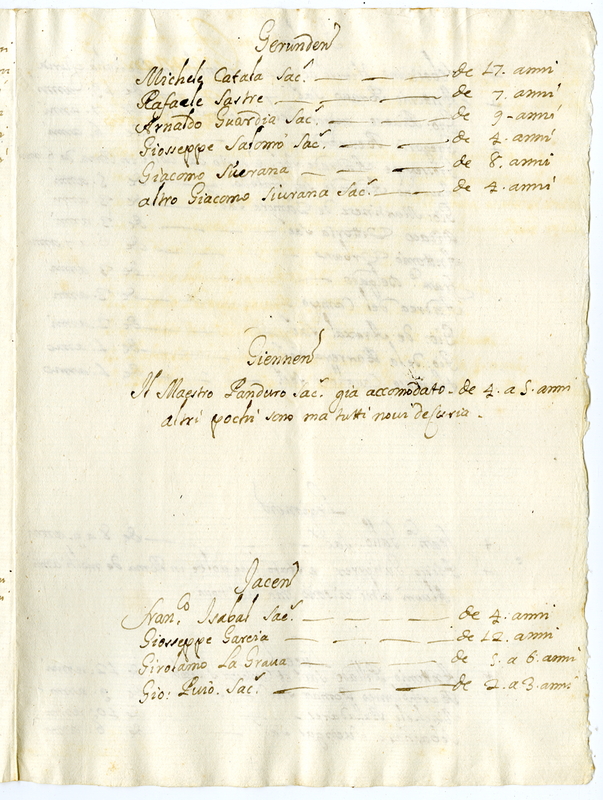 Gerunden
Michele Catala Sac. de 17. anni
Rafaele Sastre de 7. anni
Arnaldo Guardia Sac. de 9. anni
Gioseppe Salomo Sac. de 4. anni
Giacomo Siurana de 8. anni
altro Giacomo Siurana Sac. de 4. anni
Giennen
Il Maestro Panduro Sac. gia accomodato. de 4. a 5. anni
altri pochi sono ma tutti novi de Curia.
Jacen
Fran.co Isabal Sac. de 4. anni
Gioseppe Garcia de 12. anni
Girolamo La Graua de 5. a 6. anni
Gio: Puio. Sac. de 2. a 3. anni